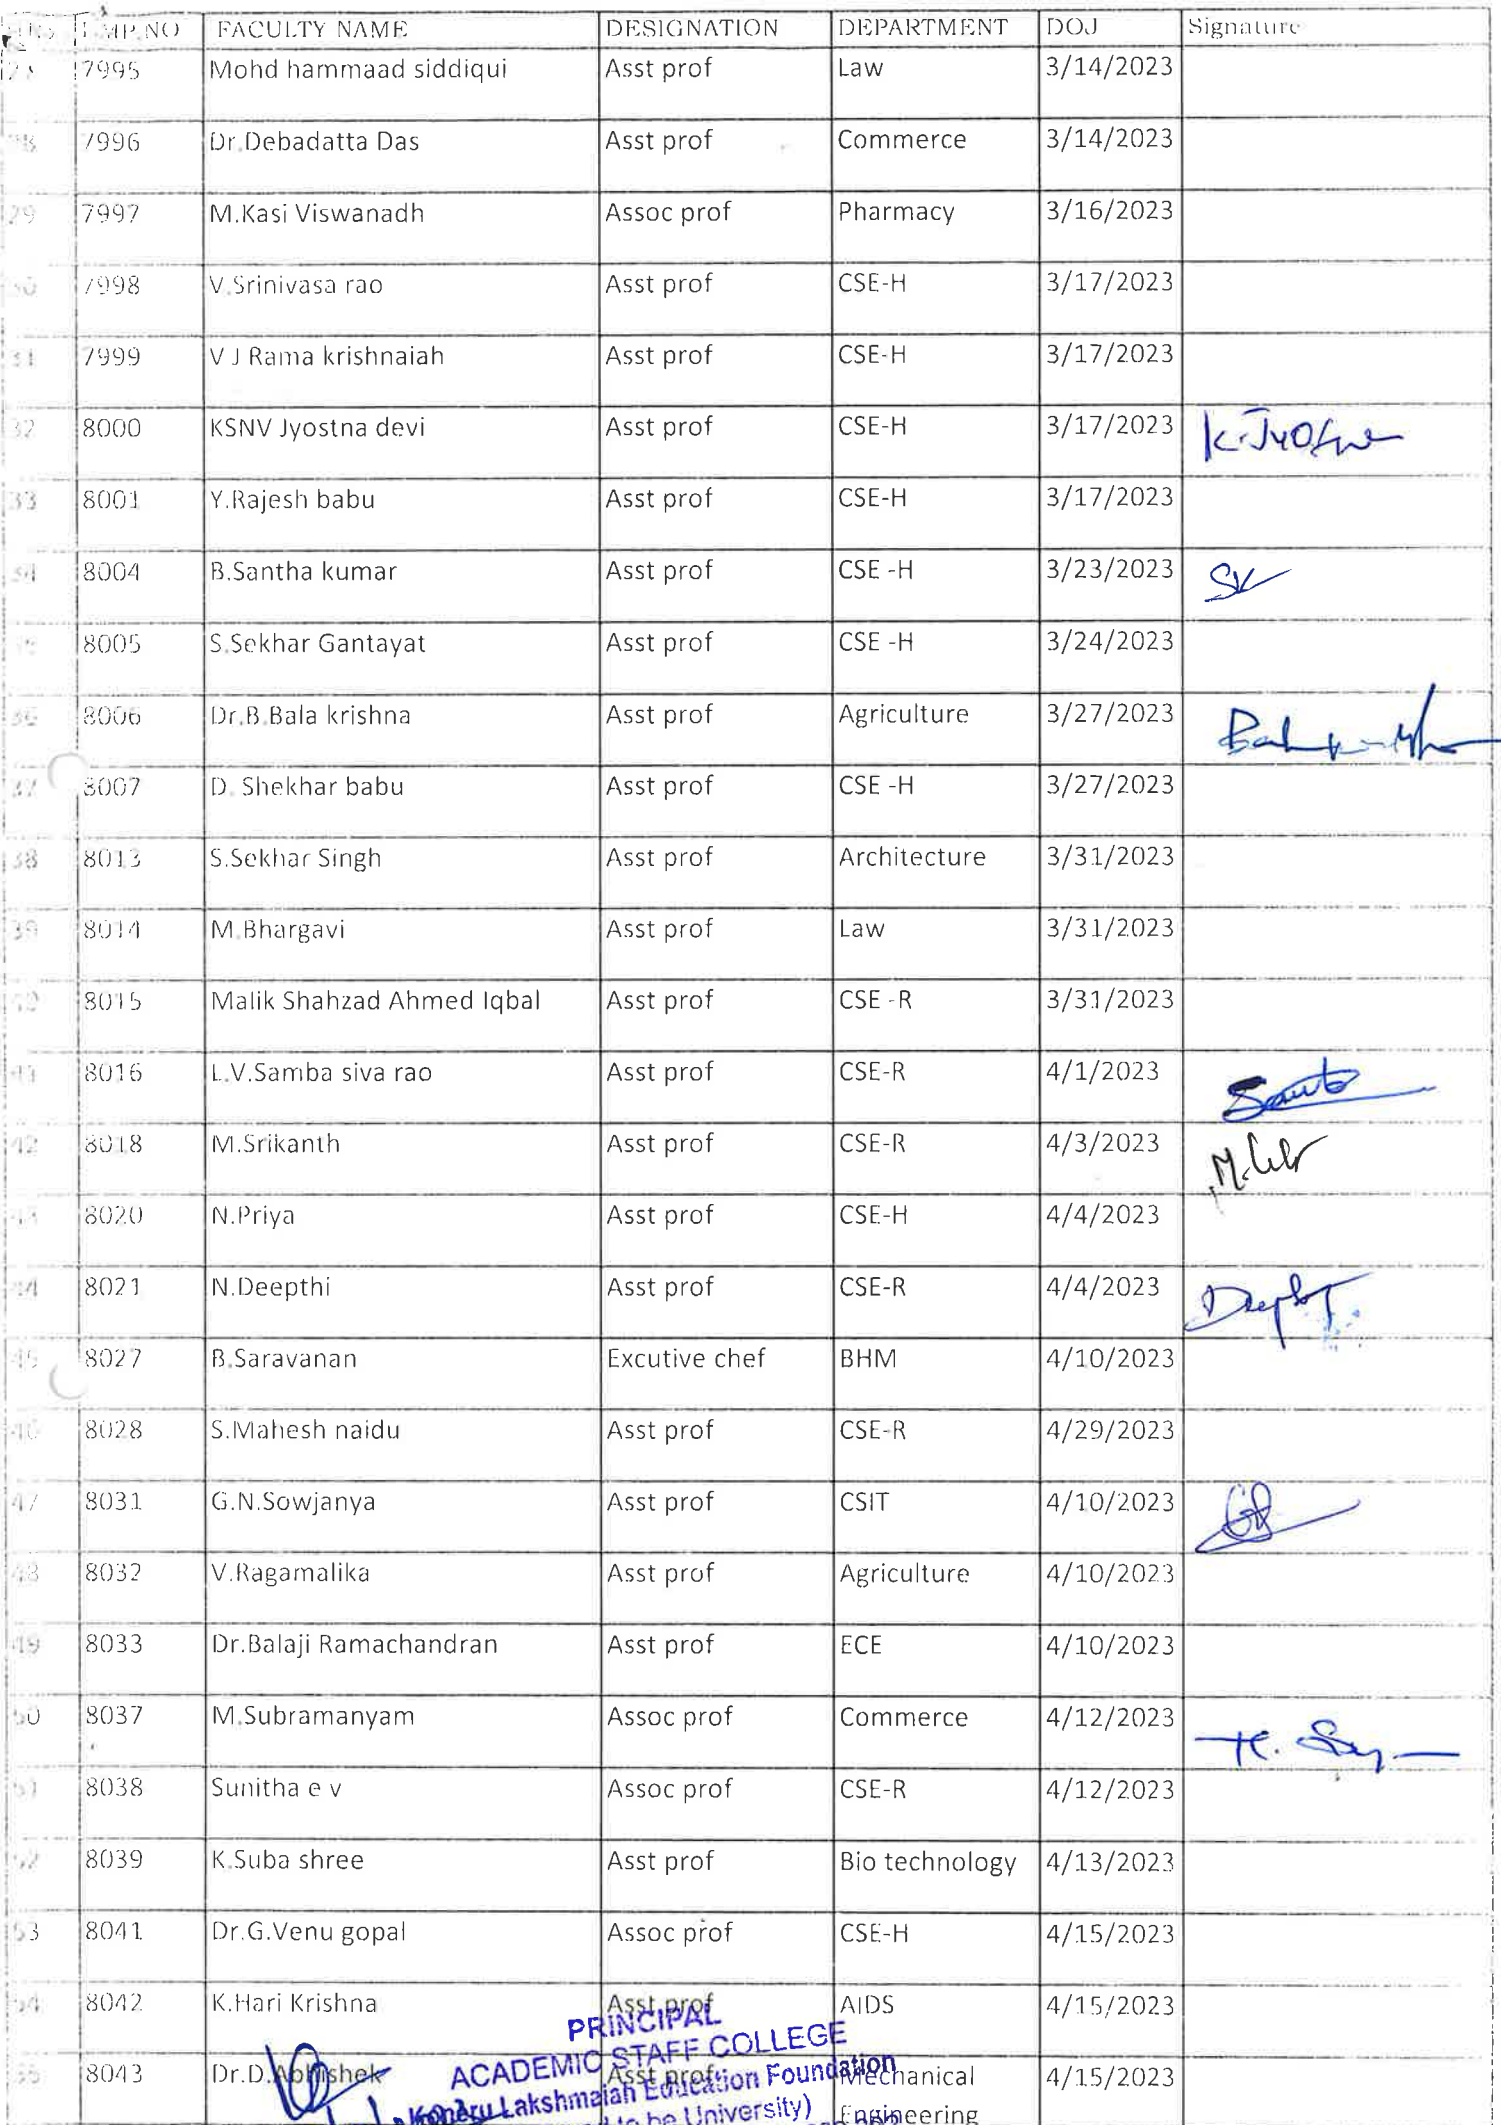 EMP.NO FACULTY NAME DESIGNATION DEPARTMENT DOJ Signature
7995 Mohd hammaad siddiqui Asst prof Law 3/14/2023
7996 Dr.Debadatta Das Asst prof Commerce 3/14/2023
29 7997 M.Kasi Viswanadh Assoc prof Pharmacy 3/16/2023
30 7998 V.Srinivasa rao Asst prof CSE-H 3/17/2023
31 7999 V J Rama krishnaiah Asst prof CSE-H 3/17/2023
32 8000 KSNV Jyostna devi Asst prof CSE-H 3/17/2023
33 8001 Y.Rajesh babu Asst prof CSE-H 3/17/2023
34 8004 B.Santha kumar Asst prof CSE -H 3/23/2023 SK
8005 S.Sekhar Gantayat Asst prof CSE -H 3/24/2023
36 8006 Dr.B.Bala krishna Asst prof Agriculture 3/27/2023
37 8007 D. Shekhar babu Asst prof CSE -H 3/27/2023
38 8013 S.Sekhar Singh Asst prof Architecture 3/31/2023
39 8014 M.Bhargavi Asst prof Law 3/31/2023
8015 Malik Shahzad Ahmed Iqbal Asst prof CSE -R 3/31/2023
8016 L.V.Samba siva rao Asst prof CSE-R 4/1/2023
42 8018 M.Srikanth Asst prof CSE-R 4/3/2023
43 8020 N.Priya Asst prof CSE-H 4/4/2023
44 8021 N.Deepthi Asst prof CSE-R 4/4/2023
45 8027 B.Saravanan Excutive chef BHM 4/10/2023
46 8028 S.Mahesh naidu Asst prof CSE-R 4/29/2023
47 8031 G.N.Sowjanya Asst prof CSIT 4/10/2023
48 8032 V.Ragamalika Asst prof Agriculture 4/10/2023
49 8033 Dr.Balaji Ramachandran Asst prof ECE 4/10/2023
50 8037 M.Subramanyam Assoc prof Commerce 4/12/2023
51 8038 Sunitha e v Assoc prof CSE-R 4/12/2023
52 8039 K.Suba shree Asst prof Bio technology 4/13/2023
53 8041 Dr.G.Venu gopal Assoc prof CSE-H 4/15/2023
54 8042 K.Hari Krishna Asst prof AIDS 4/15/2023
55 8043 Dr.D.Abhishek Asst prof Mechanical 4/15/2023
Engineering
PRINCIPAL
ACADEMIC STAFF COLLEGE
Koneru Lakshmaiah Education Foundation
to be University)